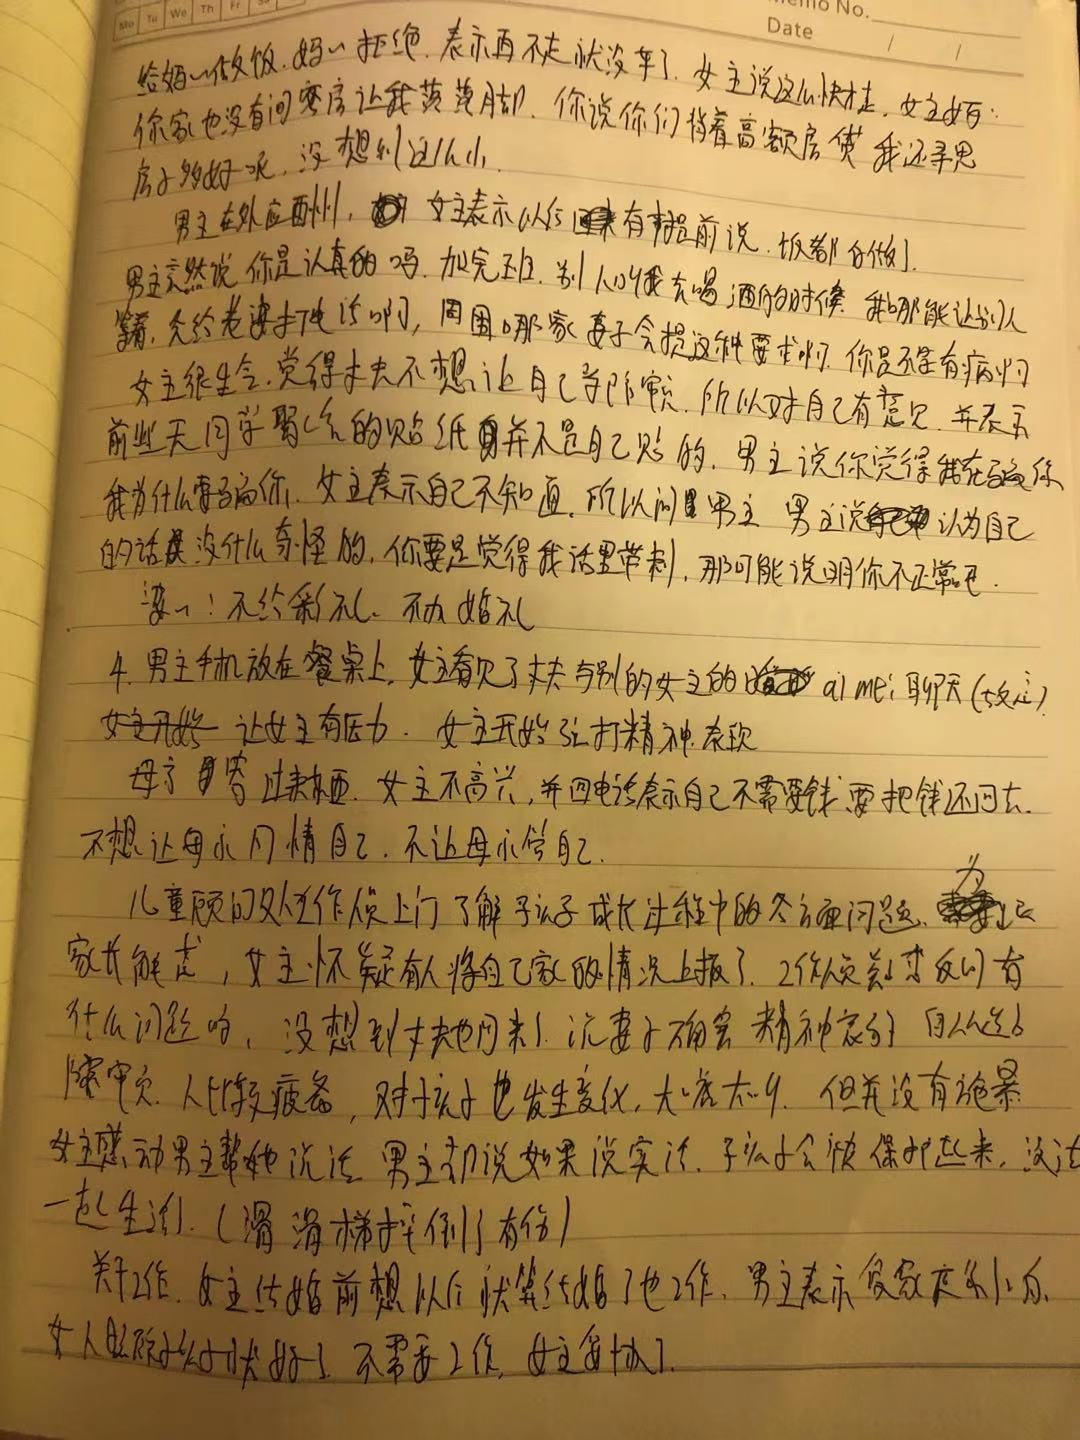 Mo Tu We Th Fr Sa
Memo No.
Date / /
给妈妈做饭.妈妈拒绝.表示再不走就没车了.女主说这么快走,女主妈:
你家也没有间客房让我蒸蒸脚.你说你们背着高额房贷 我还寻思
房子多好呢,没想到这么小.
男主在外应酬,女主表示以后有事提前说.饭都白做了.
男主竟然说 你是认真的吗.加完班.别人叫我去喝酒的时候 我哪能让别人
等着.先给老婆打电话啊,周围哪家妻子会提这种要求啊.你是不是有病啊
女主很生气.觉得丈夫不想让自己当陪审员.所以对自己有意见.并表示
前些天同学聚会的贴纸并不是自己贴的.男主说你觉得我在骗你
我为什么要骗你.女主表示自己不知道.所以问男主 男主说认为自己
的话是没什么奇怪的,你要是觉得我话里带刺,那可能说明你不正常吧.
婆婆!不给彩礼.不办婚礼
4.男主手机放在餐桌上.女主看见了丈夫与别的女主的 ai mei 聊天(故意).
女主开始 让女主有压力.女主开始强打精神.
母亲 过来.女主不高兴,并回电话表示自己不需要钱.要把钱还回去.
不想让母亲同情自己.不让母亲管自己.
儿童顾问及工作人员上门了解孩子成长过程中的各方面问题.为
家长解虑,女主怀疑有人将自己家的情况上报了.工作人员反问有
什么问题吗,没想到丈夫也回来了.说妻子 精神 因入选了
陪审员.人比较疲惫,对孩子也发生变化,大 大叫.但并没有施暴
女主感动男主帮她说话 男主却说如果说实话.孩子会被保护起来,没法
一起生活了.(滑滑梯摔倒了有伤)
关于工作.女主结婚前想以后就算结婚了也工作.男主表示
女人照顾孩子就好了.不需要工作,女主妥协了.